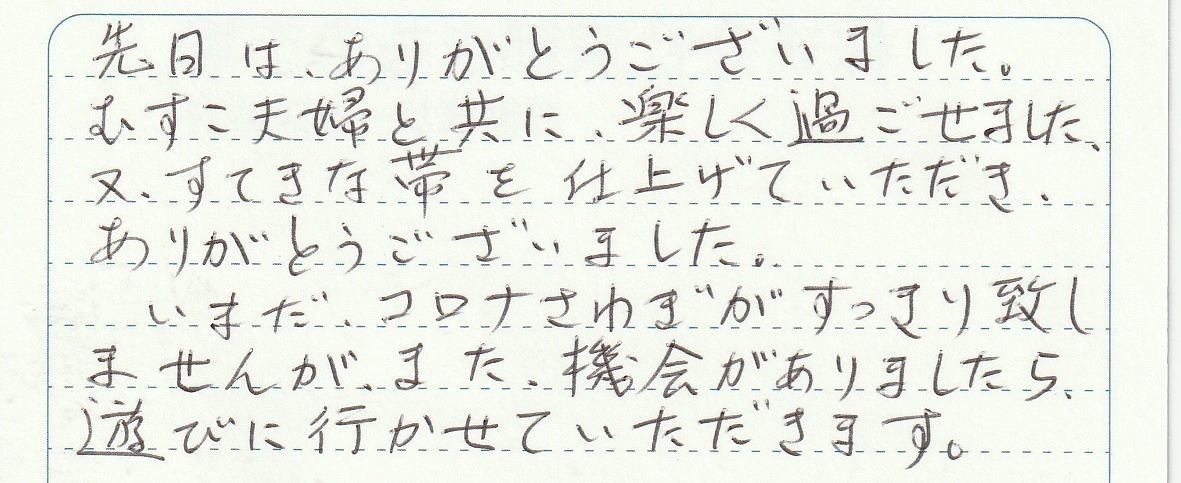 先日は、ありがとうございました。
むすこ夫婦と共に、楽しく過ごせました、
又、すてきな帯を仕上げていただき、
ありがとうございました。
いまだ、コロナさわぎがすっきり致し
ませんが、また、機会がありましたら、
遊びに行かせていただきます。